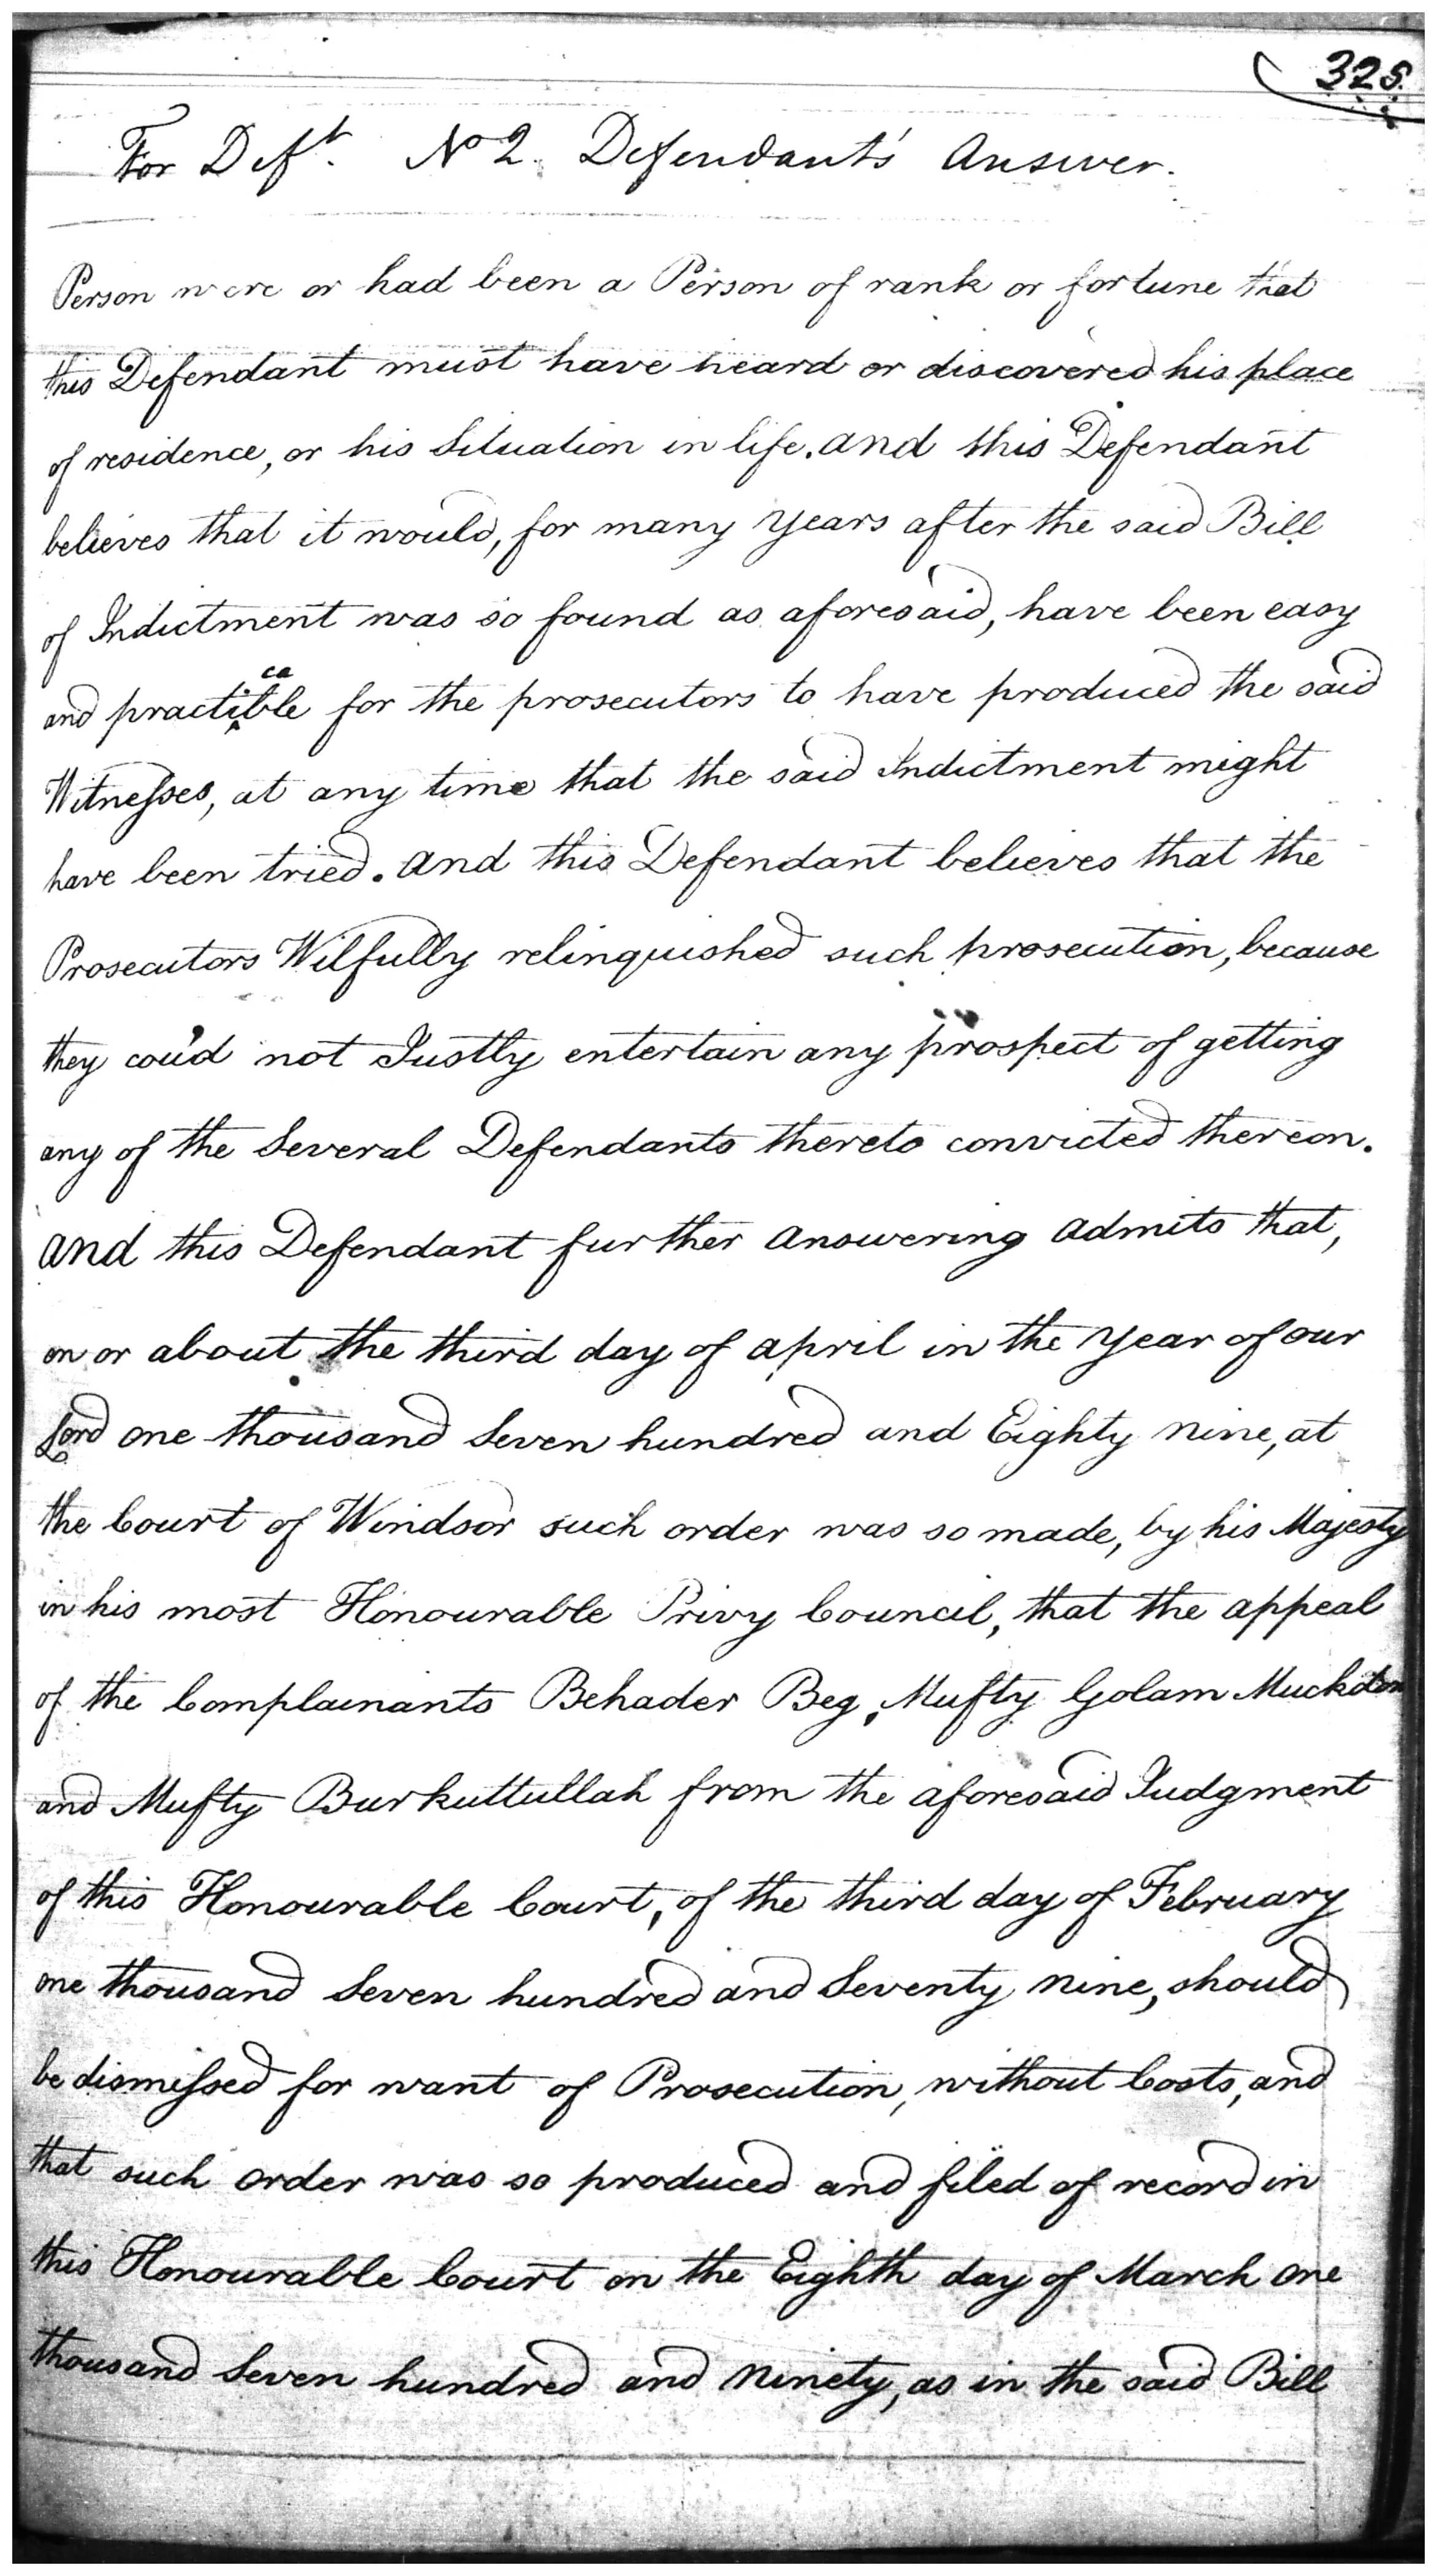 325.
For Deft. No 2. Defendant's Answer.
Person were or had been a Person of rank or fortune that
this Defendant must have heard or discovered his place
of residence, or his Situation in life. and this Defendant
believes that it would, for many Years after the said Bill
of Indictment was so found as aforesaid, have been easy
and practicable for the prosecutors to have produced the said
Witnesses, at any time that the said Indictment might
have been tried. and this Defendant believes that the
Prosecutors Wilfully relinquished such prosecution, because
they cou'd not Justly entertain any prospect of getting
any of the Several Defendants thereto convicted thereon.
and this Defendant further answering admits that,
on or about the third day of april in the Year of our
Lord one thousand Seven hundred and Eighty nine, at
the Court of Windsor such order was so made, by his Majesty
in his most Honourable Privy Council, that the appeal
of the Complainants Behader Beg, Mufty Golam
and Mufty Burkuttullah from the aforesaid Judgment
of this Honourable Court, of the third day of February
one thousand Seven hundred and Seventy nine, should
be dismissed for want of Prosecution, without Costs, and
that such order was so produced and filed of record in
this Honourable Court on the Eighth day of March one
thousand Seven hundred and ninety, as in the said Bill